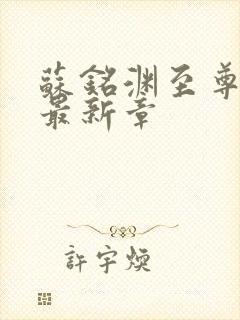 蘇銘淵至尊
最新章
許宇煥